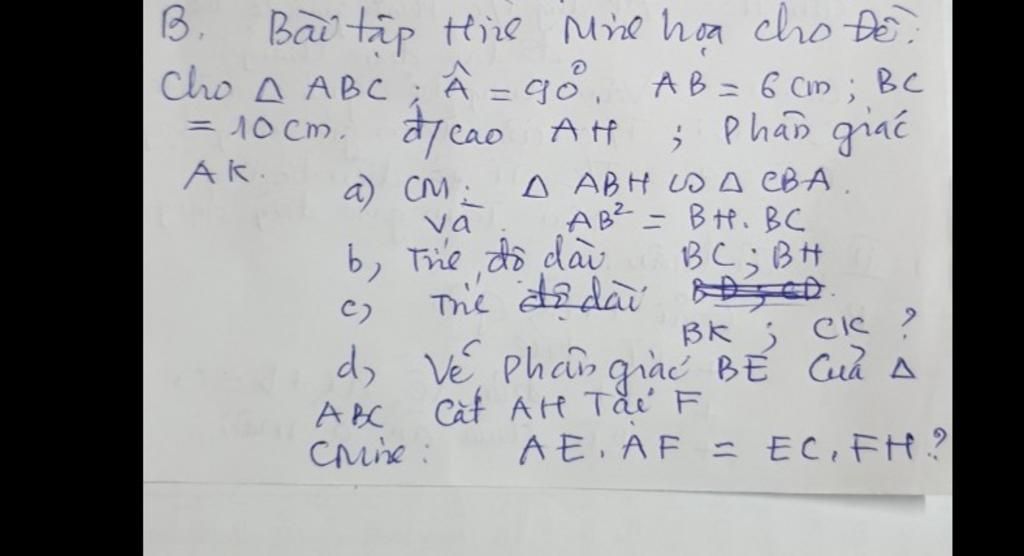 B. Bài tập Hình Minh họa cho Đề:
Cho Δ ABC ; Â = 90°. AB = 6 cm ; BC
= 10 cm. đ/cao AH ; Phân giác
AK.
a) CM: Δ ABH ∽ Δ CBA.
và AB² = BH. BC
b, Tính độ dài BC ; BH
c, Tính độ dài BD ; CD
BK ; CK ?
d, Vẽ phân giác BE của Δ
ABC cắt AH Tại F
CMinh: AE. AF = EC. FH ?